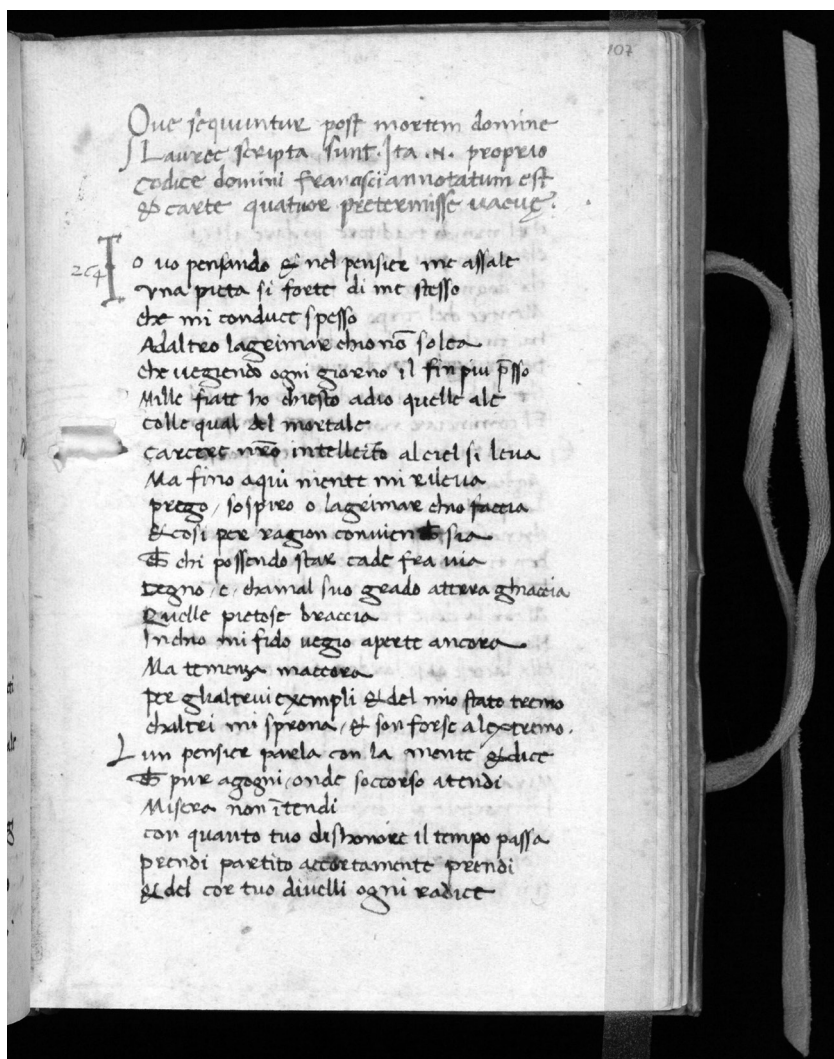 107
Que sequuntur post mortem domine
Lauree scripta sunt. Ita .N. proprio
codice domini francisci annotatum est
& carte quatuor pretermisse uacuę.
264
Io uo pensando & nel pensier me assale
vna pieta si forte di me stesso
che mi conduce spesso
Adaltro lagrimar chio nō solea
che uegiendo ogni giorno il fin piu p̄sso
Mille fiate ho chiesto adio quelle ale
colle qual del mortale
carcere nr̄o intellecto al ciel si leua
Ma fino aqui niente mi rileua
prego / sospiro o lagrimar chio faccia
& cosi per ragion convien sia
Ch chi possendo star cade fra uia
Degno / e / chamal suo grado atterra ghiaccia
Quelle pietose braccia
Inchio mi fido uegio aperte ancora
Ma temenza maccora
per glialtrui exempli & del mio stato tremo
chaltri mi sprona / & son forse alextremo.
Lun pensier parla con la mente & dice
Ch pur agogni / onde soccorso attendi
Misera non ītendi
con quanto tuo dishonore il tempo passa
prendi partito accortamente prendi
& del cor tuo diuelli ogni radice